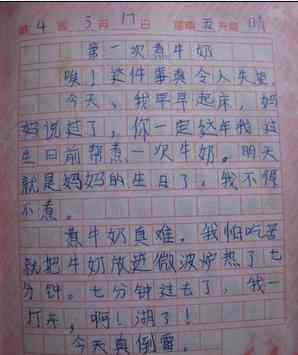 第4周5月17日 星期五天气晴
第一次煮牛奶
唉！这件事真令人失望。
今天、我早早起床，妈
妈说过了，你一定这年我过
生日前帮煮一次牛奶。明天
就是妈妈的生日了，我不得
不煮。
煮牛奶真难。我怕吃苦
就把牛奶放进微波炉热了七
分钟。七分钟过去了，我一
打开，啊！湖了！
今天真倒霉。